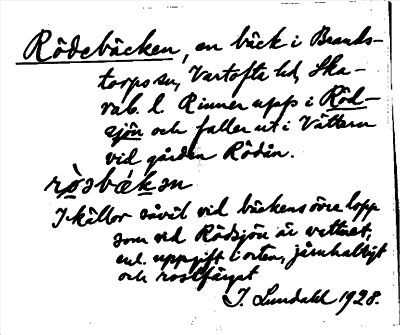 Rödebäcken, en bäck i Brands-
torps sn, Vartofta hd, Ska-
rab. l. Rinner upp i Röd-
sjön och faller ut i Vättern
vid gården Rödån.
rö̀sbäken
I källor såväl vid bäckens övre lopp
som vid Rödsjön är vattnet,
enl. uppgift i orten, järnhaltigt
och rostfärgat
J. Lundahl 1928.